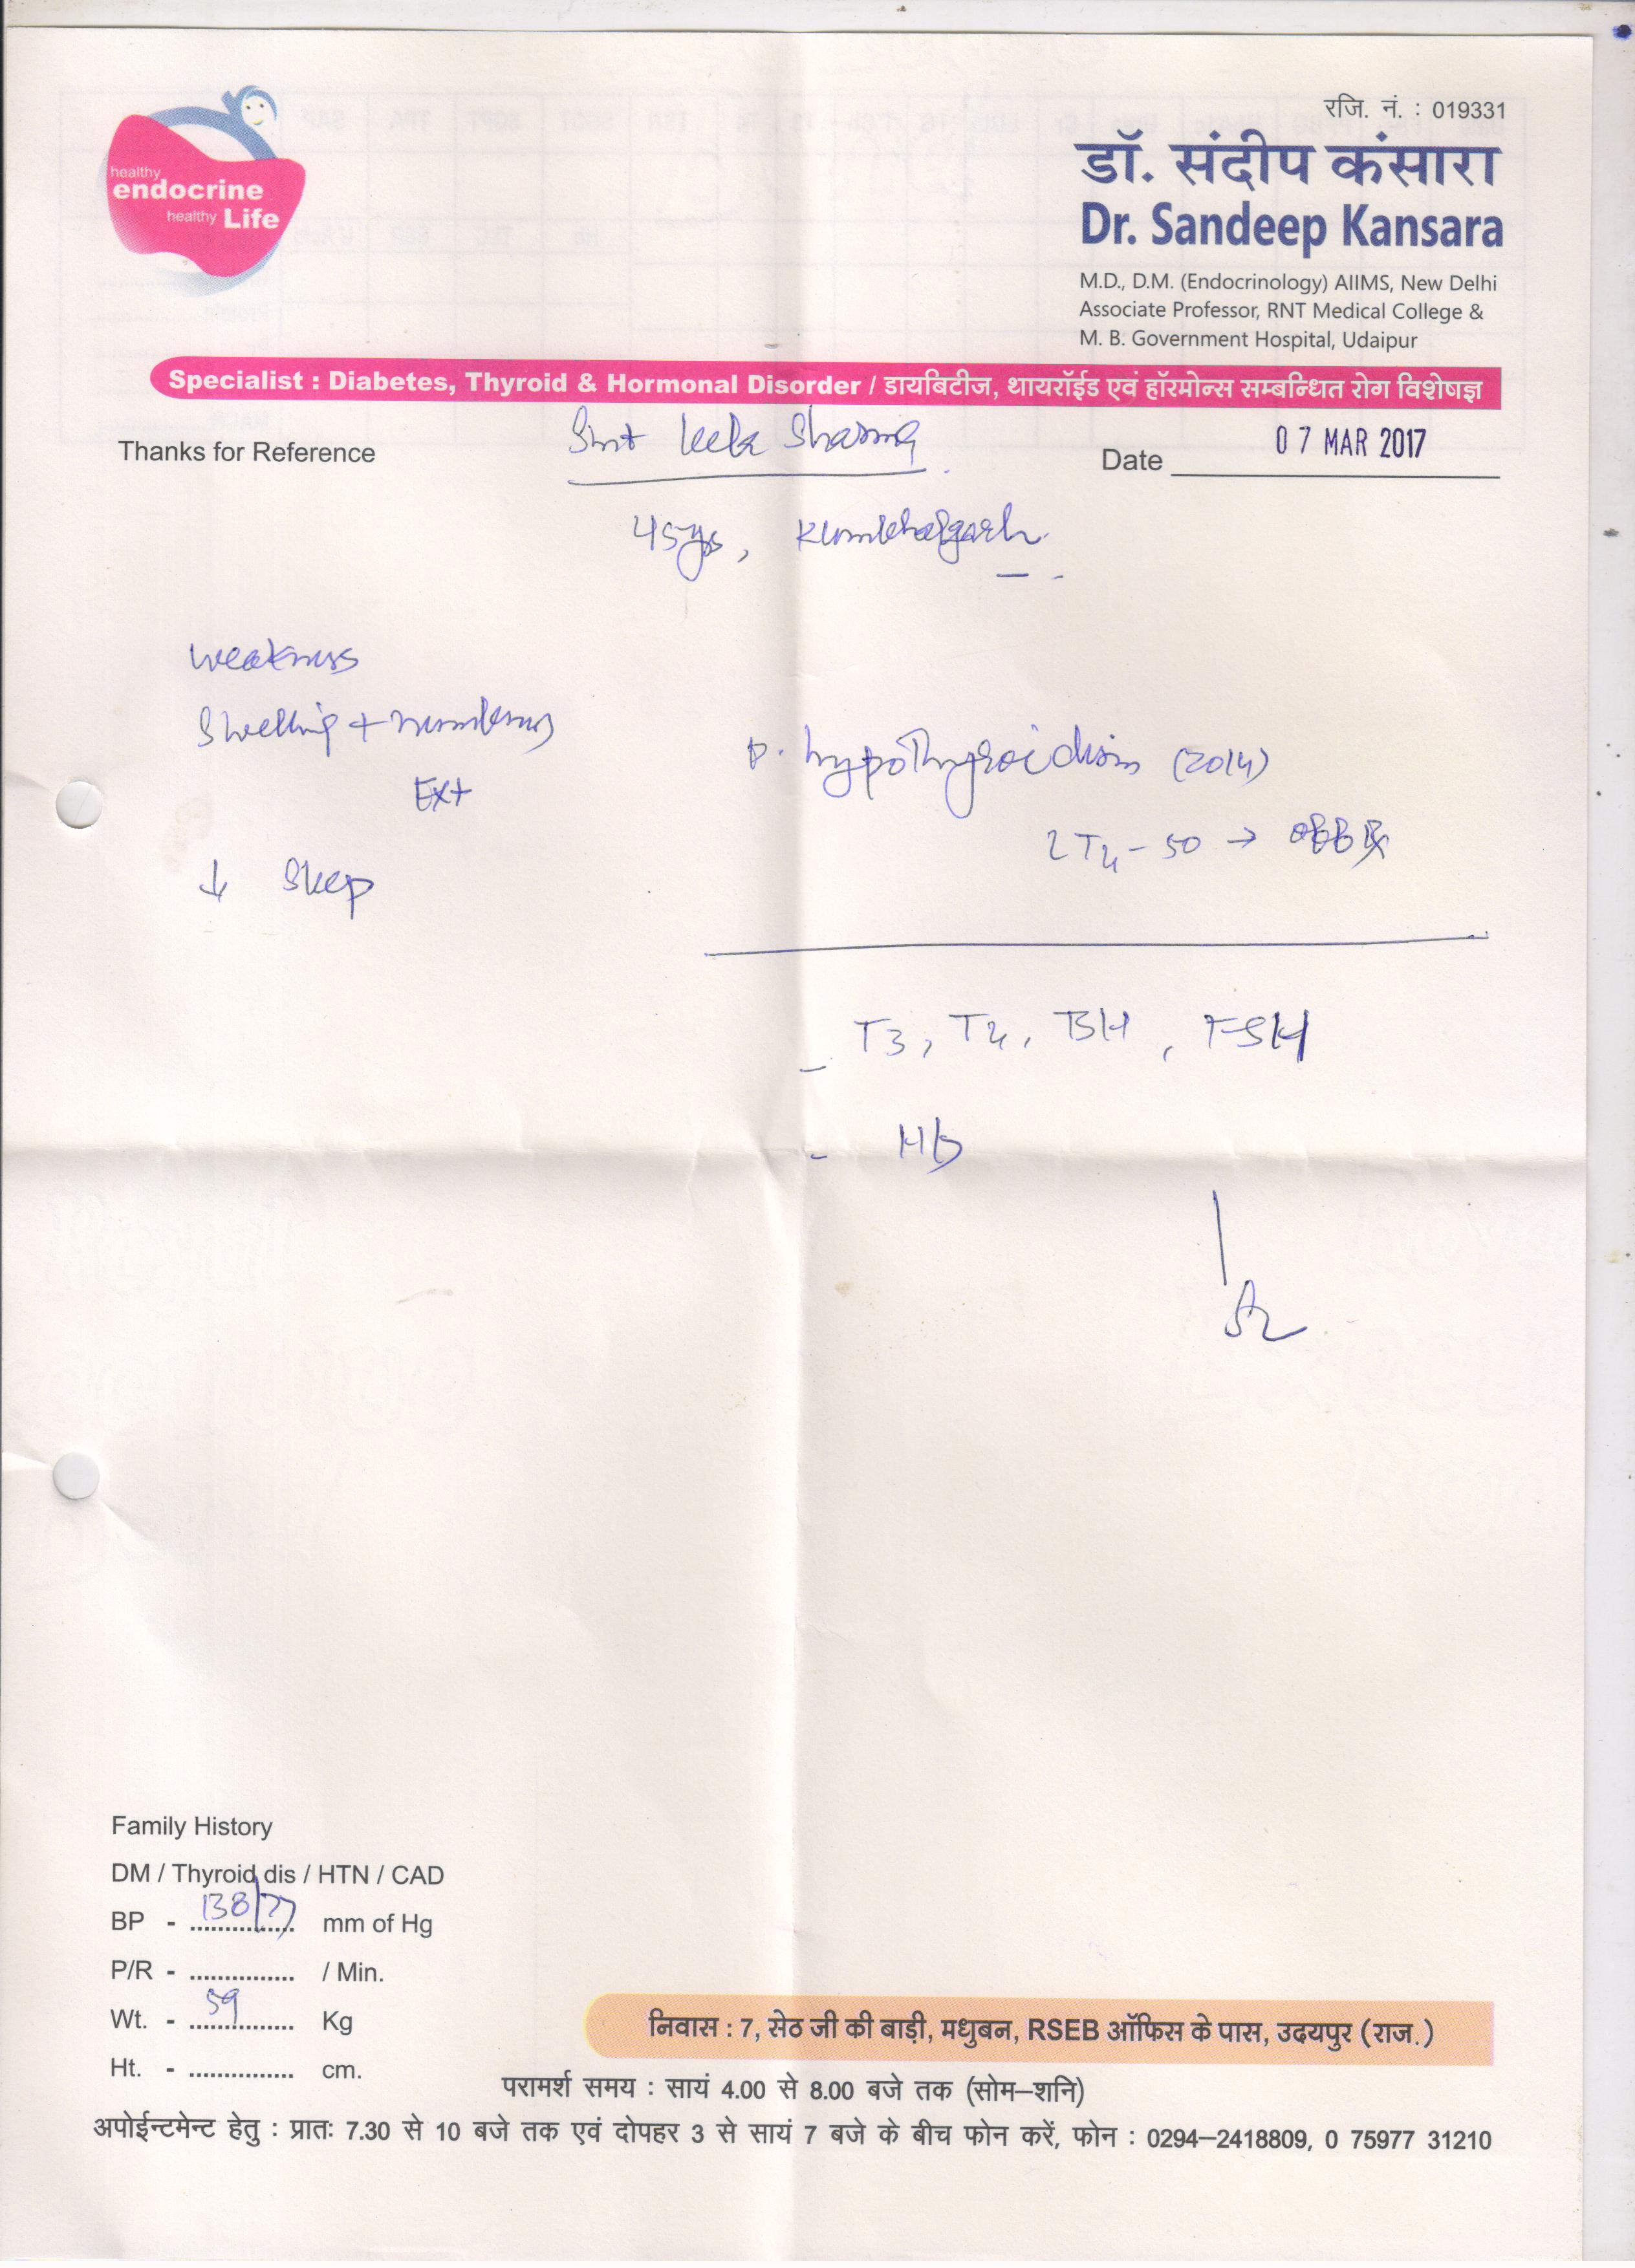 रजि. नं. : 019331
healthy
endocrine
healthy Life
डॉ. संदीप कंसारा
Dr. Sandeep Kansara
M.D., D.M. (Endocrinology) AIIMS, New Delhi
Associate Professor, RNT Medical College &
M. B. Government Hospital, Udaipur
Specialist : Diabetes, Thyroid & Hormonal Disorder / डायबिटीज, थायरॉईड एवं हॉरमोन्स सम्बन्धित रोग विशेषज्ञ
Thanks for Reference
Smt Leela Sharma
Date 07 MAR 2017
45ys, Kumbhalgarh
weakness
Swelling + numbness
Ext
↓ Sleep
hypothyroidism (2014)
LT4 - 50 → off Rx
- T3, T4, TSH, FSH
- Hb
Family History
DM / Thyroid dis / HTN / CAD
BP - 138/77 mm of Hg
P/R - ............... / Min.
Wt. - 59 Kg
Ht. - ............... cm.
निवास : 7, सेठ जी की बाड़ी, मधुबन, RSEB ऑफिस के पास, उदयपुर (राज.)
परामर्श समय : सायं 4.00 से 8.00 बजे तक (सोम–शनि)
अपोईन्टमेन्ट हेतु : प्रातः 7.30 से 10 बजे तक एवं दोपहर 3 से सायं 7 बजे के बीच फोन करें, फोन : 0294–2418809, 0 75977 31210